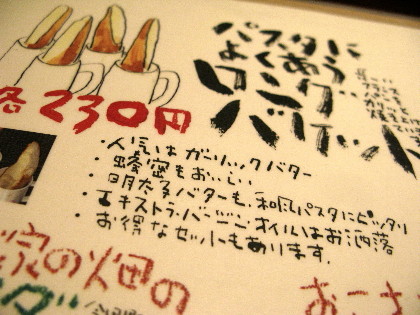 パスタに
よくあう
ロング
バゲット
各230円
・人気はガーリックバター
・蜂蜜もおいしい
・明太子バターも、和風パスタにピッタリ
・エキストラバージンオイルはお洒落
・お得なセットもあります。
家の畑の